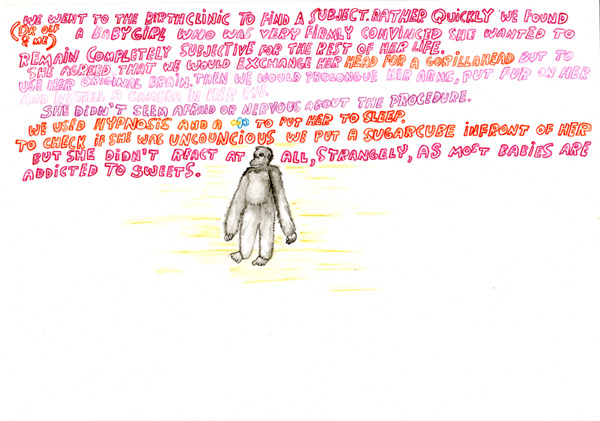 WE WENT TO THE BIRTHCLINIC TO FIND A SUBJECT. RATHER QUICKLY WE FOUND
(DR OLF & ME) A BABYGIRL WHO WAS VERY FIRMLY CONVINCED SHE WANTED TO
REMAIN COMPLETELY SUBJECTIVE FOR THE REST OF HER LIFE.
SHE AGREED THAT WE WOULD EXCHANGE HER HEAD FOR A GORILLAHEAD BUT TO
USE HER ORIGINAL BRAIN. THEN WE WOULD PROLONGUE HER ARMS, PUT FUR ON HER
AND INSTALL A CAMERA IN HER EYE.
SHE DIDN'T SEEM AFRAID OR NERVOUS ABOUT THE PROCEDURE.
WE USED HYPNOSIS AND A TO PUT HER TO SLEEP.
TO CHECK IF SHE WAS UNCOUNCIOUS WE PUT A SUGARCUBE INFRONT OF HER
BUT SHE DIDN'T REACT AT ALL, STRANGELY, AS MOST BABIES ARE
ADDICTED TO SWEETS.